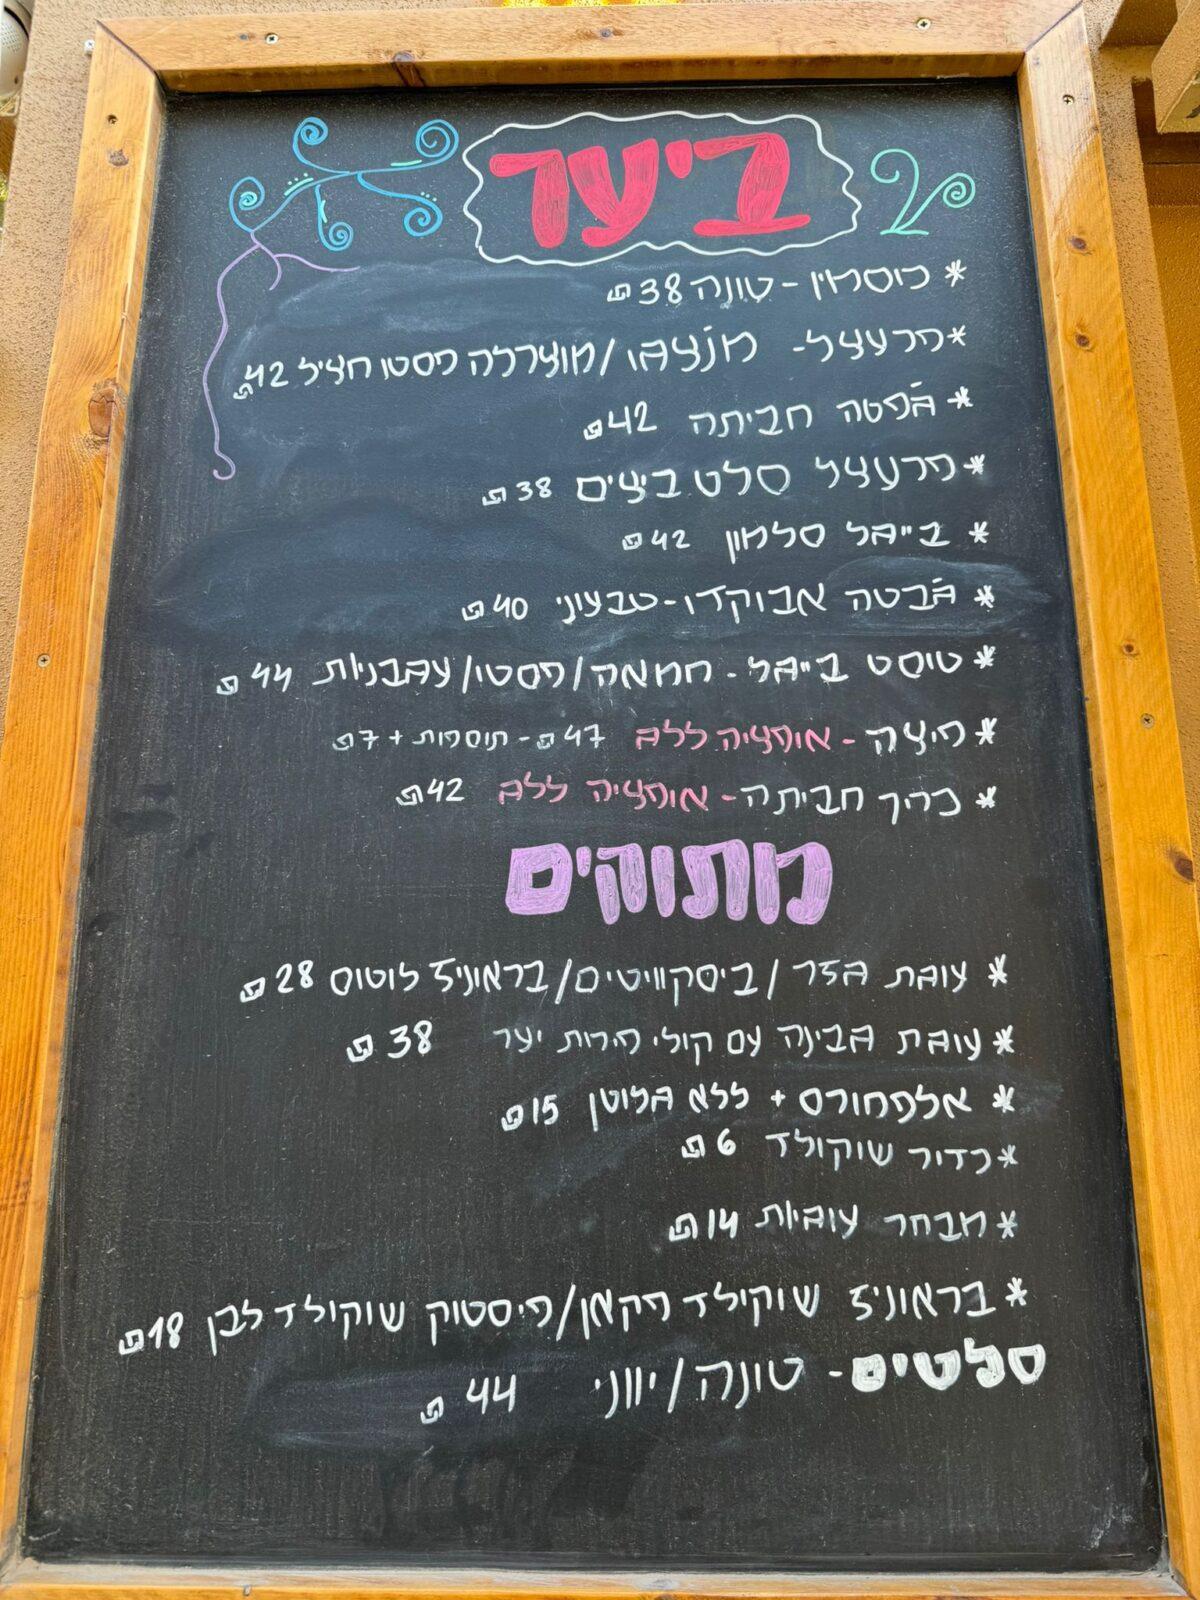 ביער
* כוסמין - טונה 38 ₪
* פרעצל - מנצ'גו/מוצרלה פסטו חציל 42 ₪
* ג'פטה חביתה 42 ₪
* פרעצל סלט ביצים 38 ₪
* בייגל סלמון 42 ₪
* ג'בטה אבוקדו - טבעוני 40 ₪
* טוסט בייגל - חמאה/פסטו/עגבניות 44 ₪
* פיצה - אופציה ללג 47 ₪ - תוספות + 7 ₪
* כריך חביתה - אופציה ללג 42 ₪
מתוקים
* עוגת גזר / ביסקוויטים/בראוניז לוטוס 28 ₪
* עוגת גבינה עם קולי פירות יער 38 ₪
* אלפחורס + ללא גלוטן 15 ₪
* כדור שוקולד 6 ₪
* מבחר עוגיות 14 ₪
* בראוניז שוקולד פקאן/פיסטוק שוקולד לבן 18 ₪
סלטים - טונה/יווני 44 ₪